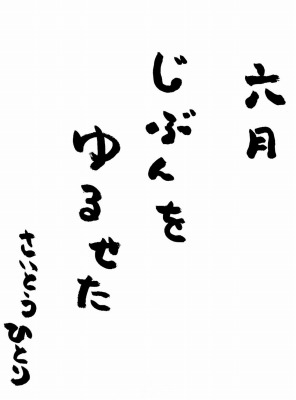 六月
じぶんを
ゆるせた
さいとうひとり